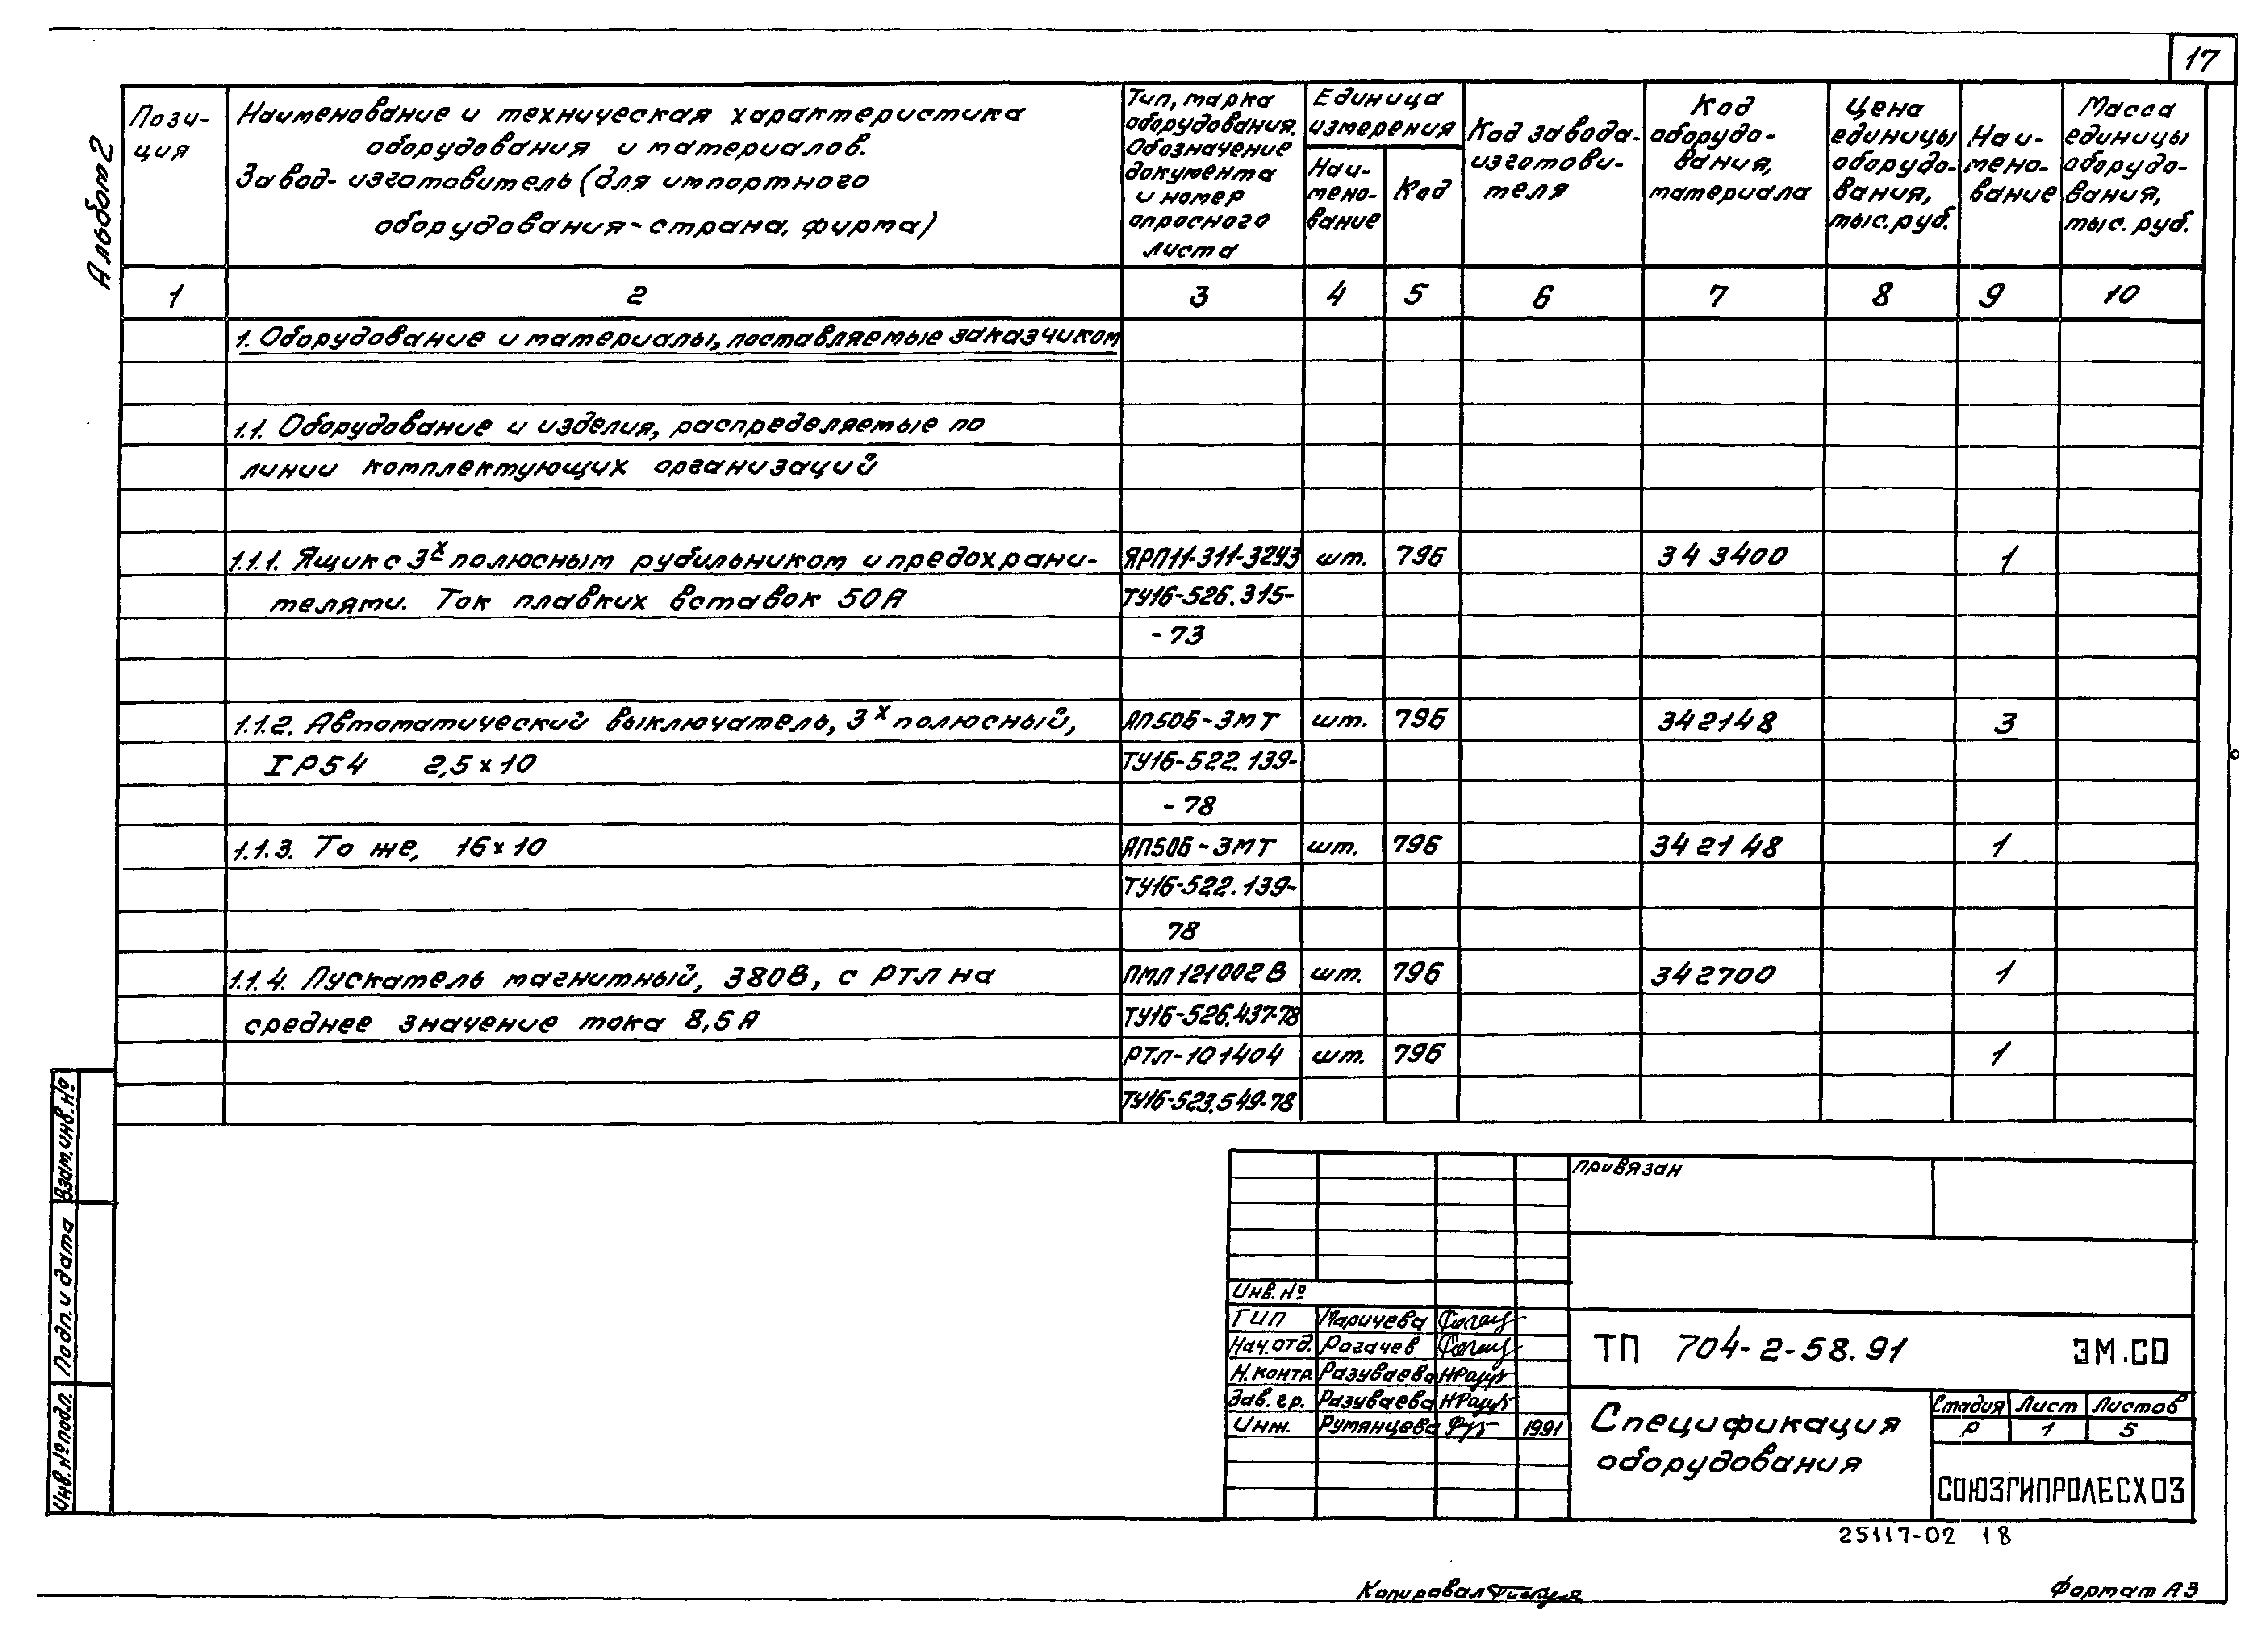 17
Альбом 2
Пози-
ция
Наименование и техническая характеристика
оборудования и материалов.
Завод-изготовитель (для импортного
оборудования-страна, фирма)
Тип, марка
оборудования.
Обозначение
документа
и номер
опросного
листа
Единица
измерения
Наи-
мено-
вание
Код
Код завода-
изготови-
теля
Код
оборудо-
вания,
материала
Цена
единицы
оборудо-
вания,
тыс.руб.
Наи-
мено-
вание
Масса
единицы
оборудо-
вания,
тыс. руб.
1 2 3 4 5 6 7 8 9 10
1. Оборудование и материалы, поставляемые заказчиком
1.1. Оборудование и изделия, распределяемые по
линии комплектующих организаций
1.1.1. Ящик с 3х полюсным рубильником и предохрани- ЯРП11-311-32У3 шт. 796 343400 1
телями. Ток плавких вставок 50А ТУ16-526.315-
-73
1.1.2. Автоматический выключатель, 3х полюсный, АП50Б-3МТ шт. 796 342148 3
IP54 2,5×10 ТУ16-522.139-
-78
1.1.3. То же, 16×10 АП50Б-3МТ шт. 796 342148 1
ТУ16-522.139-
78
1.1.4. Пускатель магнитный, 380В, с РТЛ на ПМЛ121002В шт. 796 342700 1
среднее значение тока 8,5А ТУ16-526.437-78
РТЛ-101404 шт. 796 1
ТУ16-523.549-78
Взам.инв.№
Подп. и дата
Инв.№подл.
привязан
Инв. №
ГИП Маричева
Нач.отд. Рогачев
Н.контр. Разуваева
Зав.гр. Разуваева
Инж. Румянцева 1991
ТП 704-2-58.91 ЭМ.СО
Спецификация
оборудования
Стадия Лист Листов
Р 1 5
СОЮЗГИПРОЛЕСХОЗ
25117-02 18
Копировал
Формат А3